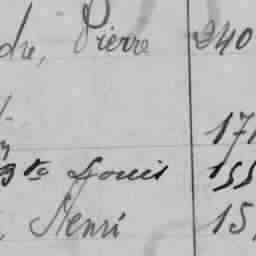 dre, Pierre 240
171
gte Louis 155
Henri 15